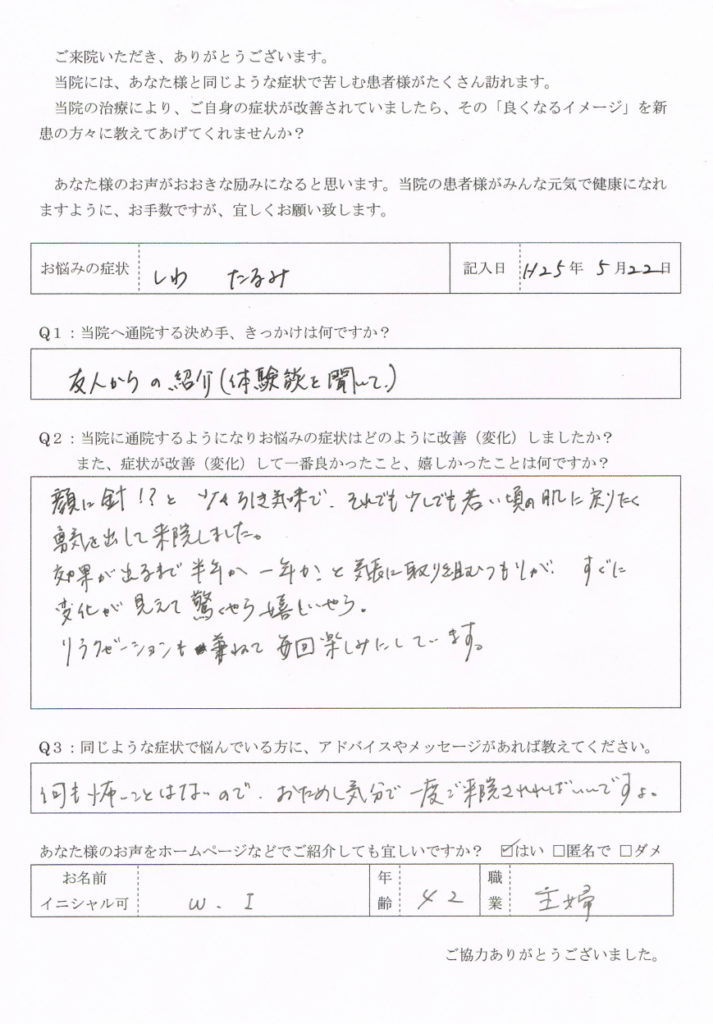 ご来院いただき、ありがとうございます。
当院には、あなた様と同じような症状で苦しむ患者様がたくさん訪れます。
当院の治療により、ご自身の症状が改善されていましたら、その「良くなるイメージ」を新
患の方々に教えてあげてくれませんか？
あなた様のお声がおおきな励みになると思います。当院の患者様がみんな元気で健康になれ
ますように、お手数ですが、宜しくお願い致します。
お悩みの症状 しわ たるみ 記入日 H25年 5月22日
Q1：当院へ通院する決め手、きっかけは何ですか？
友人からの紹介(体験談を聞いて。)
Q2：当院に通院するようになりお悩みの症状はどのように改善（変化）しましたか？
また、症状が改善（変化）して一番良かったこと、嬉しかったことは何ですか？
顔に針!?と 少々引き気味で、それでも少しでも若い頃の肌に戻りたく
勇気を出して来院しました。
効果が出るまで半年か一年か、と気長に取り組むつもりが、すぐに
変化が見えて驚くやら嬉しいやら。
リラクゼーションも兼ねて毎回楽しみにしています。
Q3：同じような症状で悩んでいる方に、アドバイスやメッセージがあれば教えてください。
何も怖いことはないので、おためし気分で一度ご来院されればいいですよ。
あなた様のお声をホームページなどでご紹介しても宜しいですか？ ☑はい □匿名で □ダメ
お名前 年 職
イニシャル可 W. I 齢 42 業 主婦
ご協力ありがとうございました。